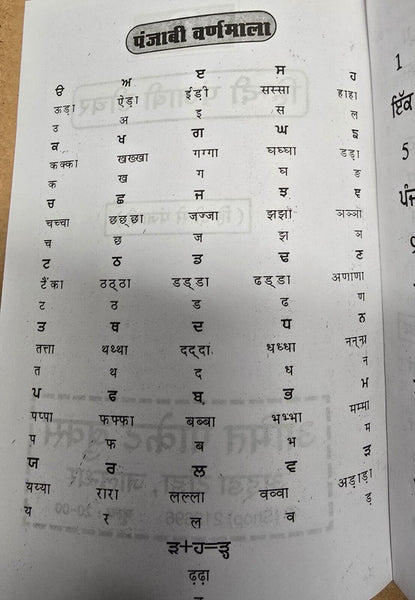 पंजाबी वर्णमाला
ੳ ਅ ੲ ਸ ਹ
ऊड़ा ऐड़ा ईड़ी सस्सा हाहा
उ अ इ स ल
ਕ ਖ ਗ ਘ ਙ
कक्का खख्खा गग्गा घघ्घा ङड़ा
क ख ग घ ङ
ਚ ਛ ਜ ਝ ਞ
चच्चा छछ्छा जज्जा झझा ञञा
च छ ज झ ञ
ਟ ਠ ਡ ਢ ਣ
टैंका ठठ्ठा डड्डा ढड्डा अणाणा
ट ठ ड ढ ण
ਤ ਥ ਦ ਧ ਨ
तत्ता थथ्था दद्दा धध्धा नन्ना
त थ द ध न
ਪ ਫ ਬ ਭ ਮ
पप्पा फफ्फा बब्बा भभ्भा मम्मा
प फ ब भ म
ਯ ਰ ਲ ਵ ੜ
यय्या रारा लल्ला वव्वा अड़ाड़ा
य र ल व ड़
ੜ+ਹ=ੜ੍ਹ
ढ़ढ़ा
1
ਇੱਕ
5